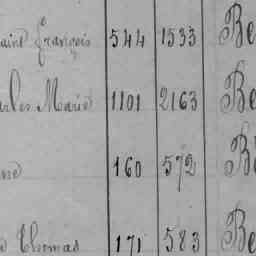 François 544 1533 Be
Marie 1101 2163 Be
160 572 B
Thomas 171 583 Be